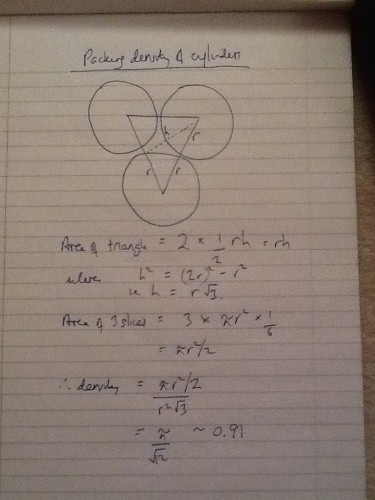 Packing density of cylinders
h r
r r
Area of triangle = 2 × 1/2 rh = rh
where h² = (2r)² - r²
ie h = r√3.
Area of 3 slices = 3 × πr² × 1/6
= πr²/2
∴ density = πr²/2 / r²√3
= π/√12 ~ 0.91